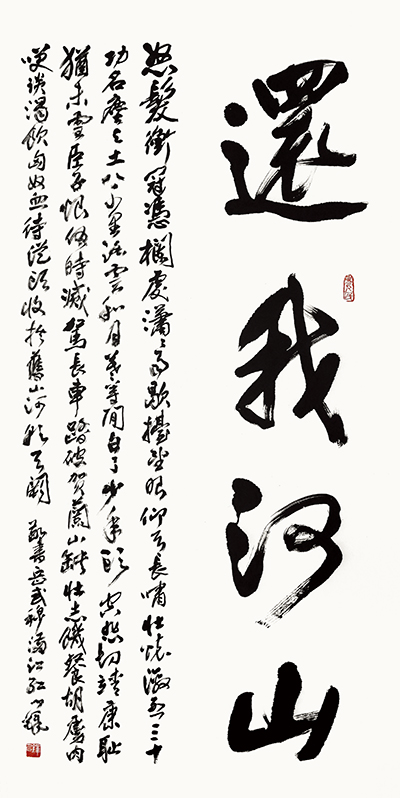 還我河山
怒髮衝冠憑欄處瀟瀟雨歇擡望眼仰天長嘯壯懷激烈三十
功名塵与土八千里路雲和月莫等閒白了少年頭空悲切靖康恥
猶未雪臣子恨何時滅駕長車踏破賀蘭山缺壯志饑餐胡虜肉
笑談渴飲匈奴血待從頭收拾舊山河朝天闕 敬書岳武穆滿江紅